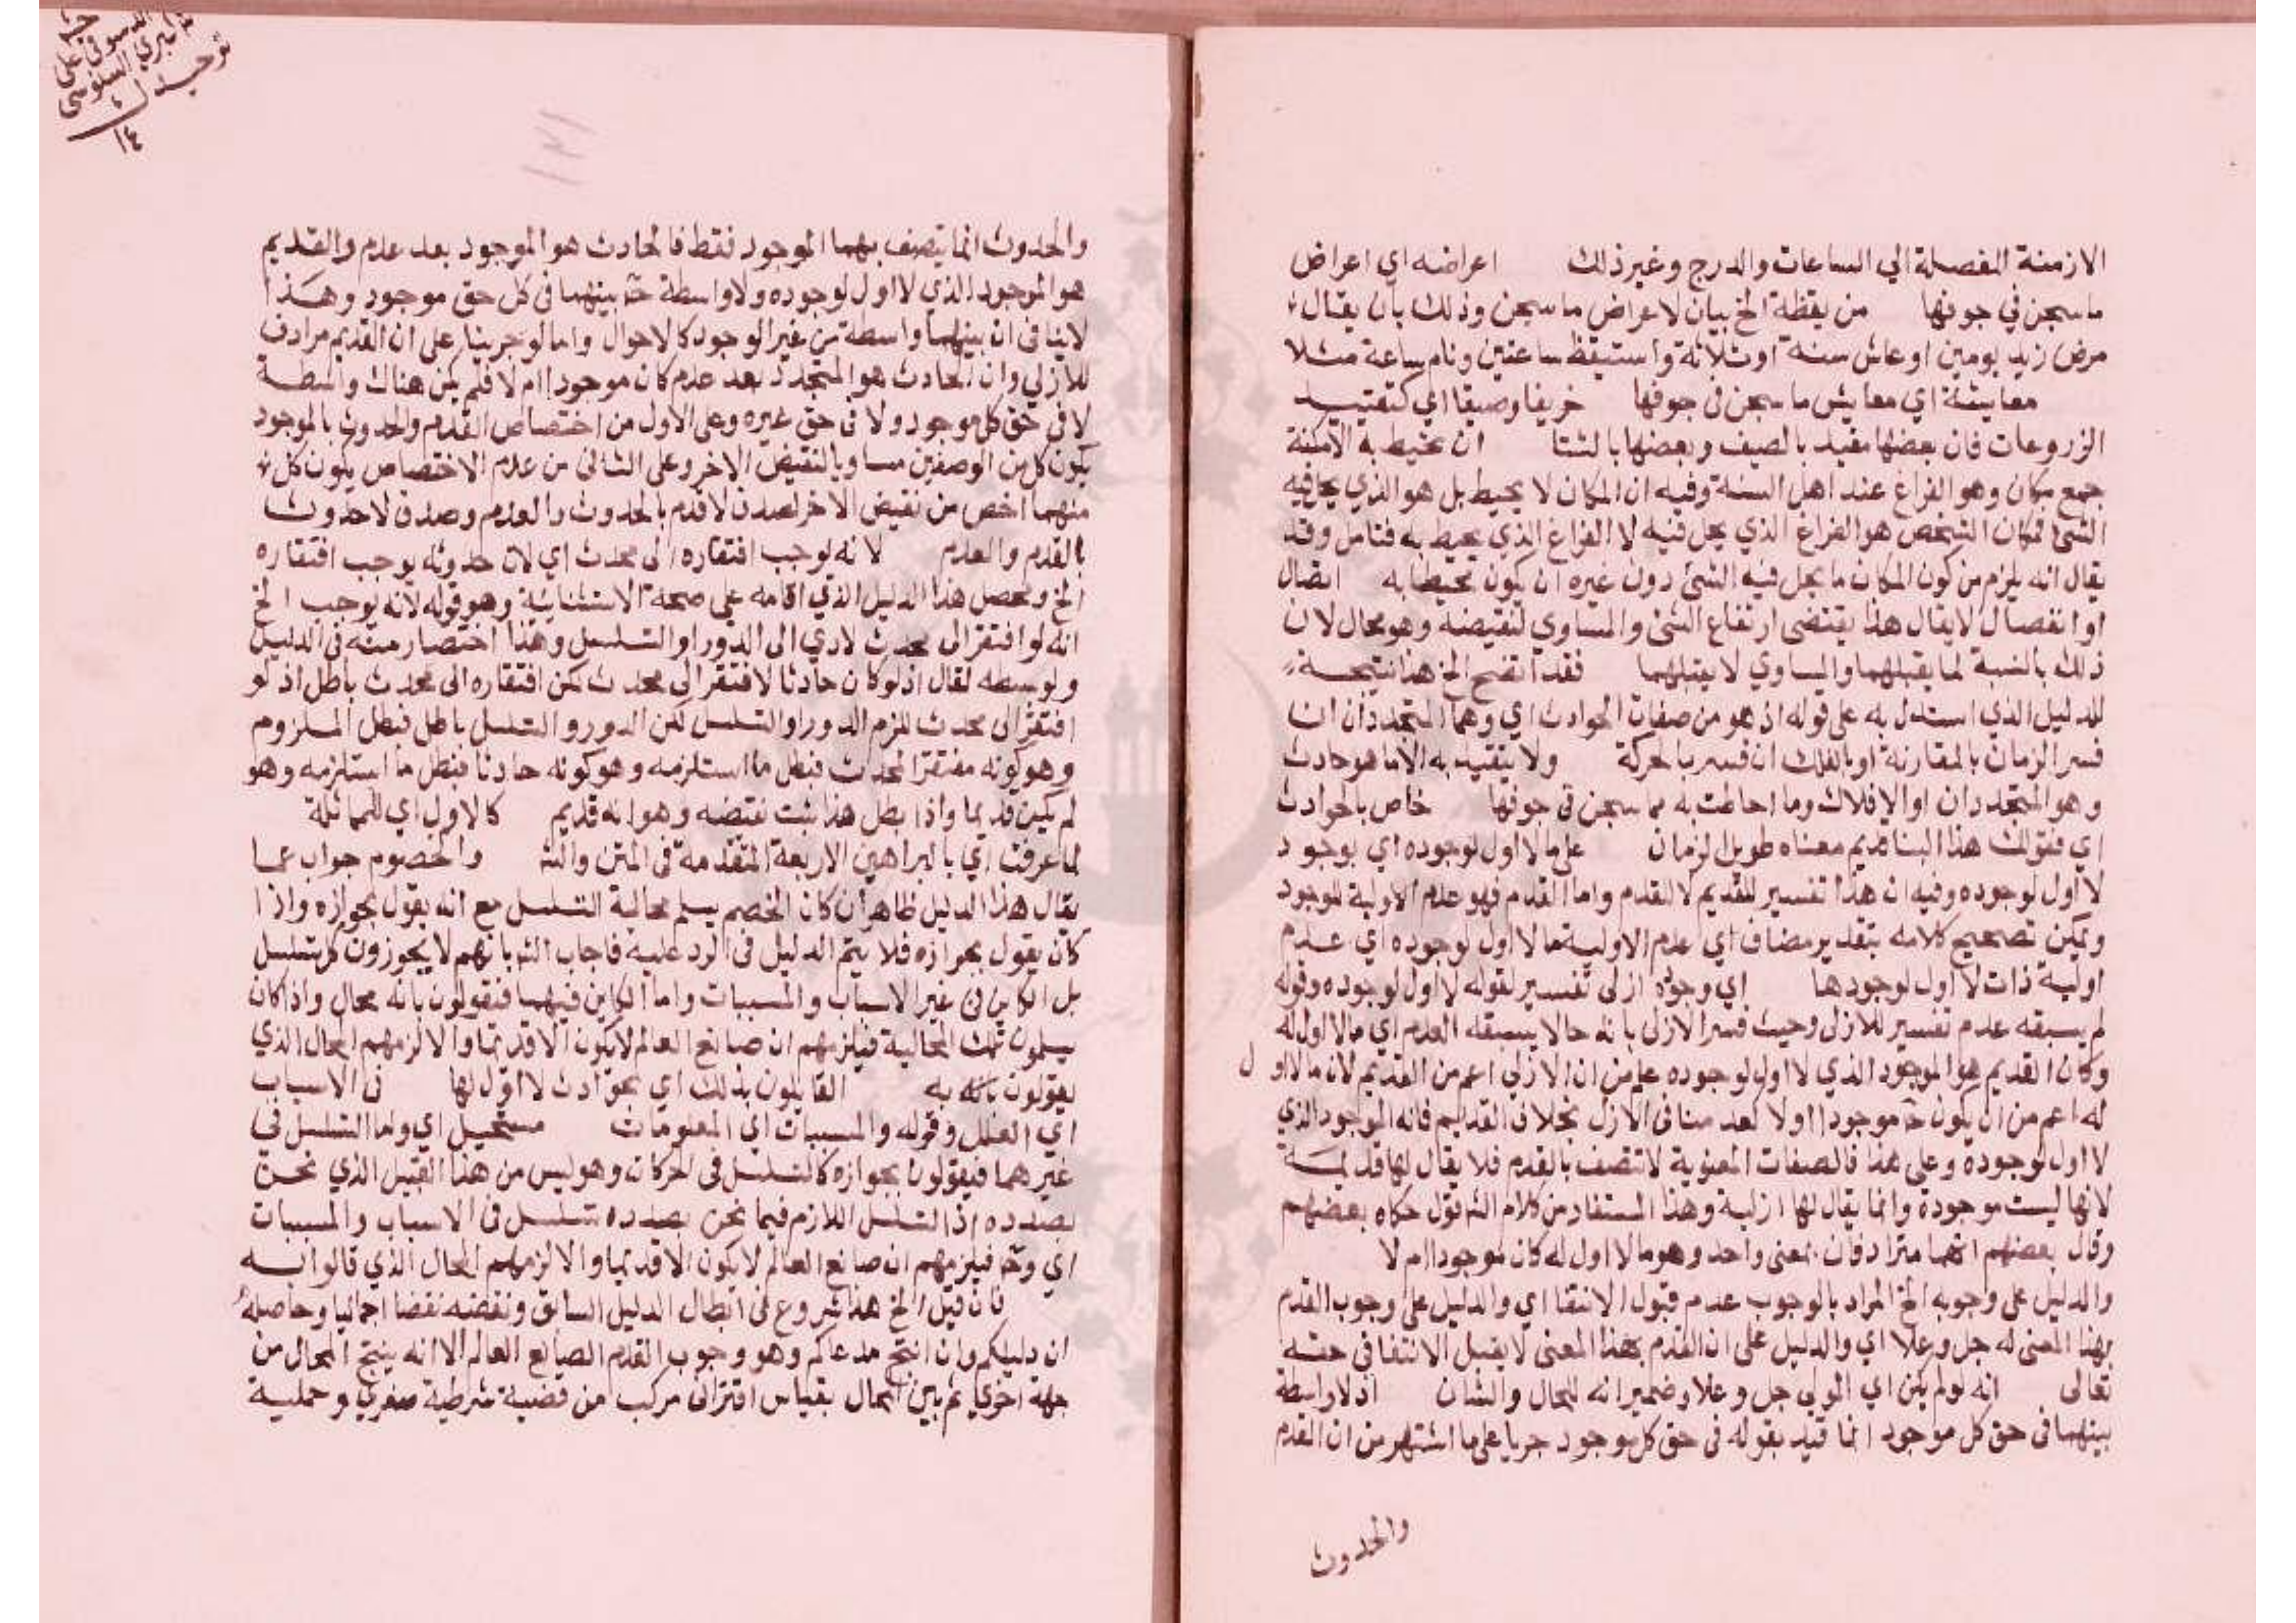 الازمنة المفصلة الي الساعات والدرج وغير ذلك اعراضه اي اعراض
ما سجن في جوفها من يقظة الخ بيان لاعراض ما سجن وذلك بان يقال
مرض زيد يومين او عاش سنة او ثلاثة واستيقظ ساعتين ونام ساعة مثلا
معايشة اي معايش ما سجن في جوفها خريفا وصيفا اي كتقييد
الزروعات فان بعضها مقيد بالصيف وبعضها بالشتا ان تحيط به الامكنة
جمع مكان وهو الفراغ عند اهل السنة وفيه ان المكان لا يحيط بل هو الذي يحل فيه
الشئ فمكان الشخص هو الفراغ الذي يحل فيه لا الفراغ الذي يحيط به فتامل وقد
يقال انه يلزم من كون المكان ما يحل فيه الشئ دون غيره ان يكون محيطا به اتصال
او انفصال لا يقال هذا يقتضي ارتفاع الشئ والمساوي لنقيضه وهو محال لان
ذلك بالنسبة لما يقبلهما والمساوي لا يقبلهما فقد اتضح الخ هذا نتيجة
للدليل الذي استدل به على قوله اذ هو من صفات الحوادث اي وهما المتجددان ان
فسر الزمان بالمقارنة او بالفلك ان فسر بالحركة ولا يتقيد به الا ما هو حادث
وهو المتجددان او الافلاك وما احاطت به مما سجن في جوفها خاص بالحوادث
اي فقولك هذا البنا قديم معناه طويل الزمان على ما لا اول لوجوده اي بوجود
لا اول لوجوده وفيه ان هذا تفسير للقديم لا القدم واما القدم فهو عدم الاولية للوجود
ويمكن تصحيح كلامه بتقدير مضاف اي عدم الاولية ما لا اول لوجوده اي عدم
اولية ذات لا اول لوجودها اي وجوده ازلى تفسير لقوله لا اول لوجوده وقوله
لم يسبقه عدم تفسير للازلى وحيث فسر الازلى بانه ما لا يسبقه العدم اي ما لا اول له
وكان القديم هو الموجود الذي لا اول لوجوده علم من ان الازلي اعم من القديم لان ما لا اول
له اعم من ان يكون موجودا او لا كعدمنا في الازل بخلاف القديم فانه الموجود الذي
لا اول لوجوده وعلى هذا فالصفات المعنوية لا تتصف بالقدم فلا يقال لها قديمة
لانها ليست موجودة وانما يقال لها ازلية وهذا المستفاد من كلام الش قول حكاه بعضهم
وقال بعضهم انهما مترادفان بمعنى واحد وهو ما لا اول له كان موجودا ام لا
والدليل على وجوبه الخ المراد بالوجوب عدم قبول الانتفا اي والدليل على وجوب القدم
بهذا المعنى له جل وعلا اي والدليل على ان القدم بهذا المعنى لا يقبل الانتفا في حقه
تعالى انه لو لم يكن اي المولى جل وعلا وضمير انه للحال والشان اذ لا واسطة
بينهما في حق كل موجود انما قيد بقوله في حق كل موجود جريا على ما اشتهر من ان القدم
والحدوث
على
السنوسي
توحيد
١٤
١٣١
والحدوث انما يتصف بهما الموجود فقط فالحادث هو الموجود بعد عدم والقديم
هو الموجود الذي لا اول لوجوده ولا واسطة ح بينهما في كل حق موجود وهذا
لا ينافى ان بينهما واسطة من غير الوجود كالاحوال واما لو جرينا على ان القديم مرادف
للازلي وان الحادث هو المتجدد بعد عدم كان موجودا ام لا فلم يكن هناك واسطة
لا في حق كل موجود ولا في حق غيره وعلى الاول من اختصاص القدم والحدوث بالموجود
يكون كل من الوصفين مساويا لنقيض الاخر وعلى الثانى من عدم الاختصاص يكون كل
منهما اخص من نقيض الاخر لصدق لا قدم بالحدوث والعدم وصدق لا حدوث
بالقدم والعدم لانه لوجب افتقاره الى محدث اي لان حدوثه يوجب افتقاره
الخ ومحصل هذا الدليل الذي اقامه على صحة الاستثنائية وهو قوله لانه يوجب الخ
انه لو افتقر الى محدث لادي الى الدور او التسلسل وهذا اختصار منه في الدليل
ولو بسطه لقال اذ لو كان حادثا لافتقر الى محدث لكن افتقاره الى محدث باطل اذ لو
افتقر الى محدث للزم الدور او التسلسل لكن الدور والتسلسل باطل فبطل الملزوم
وهو كونه مفتقرا لمحدث فبطل ما استلزمه وهو كونه حادثا فبطل ما استلزمه وهو
لم يكن قديما واذا بطل هذا ثبت نقيضه وهو انه قديم كالاول اي للمماثلة
لما عرفت اي بالبراهين الاربعة المتقدمة في المتن والش والخصوم جواب عما
يقال هذا الدليل ظاهر ان كان الخصم يسلم محالية التسلسل مع انه يقول بجوازه واذا
كان يقول بجوازه فلا يتم الدليل في الرد عليه فاجاب الش بانهم لا يجوزون كل تسلسل
بل الكاين في غير الاسباب والمسببات واما الكاين فيهما فيقولون بانه محال واذا كان
يسلمون تلك المحالية فيلزمهم ان صانع العالم لا يكون الا قديما والا لزمهم المحال الذي
يقولون بانه به القايلون بذلك اي بحوادث لا اول لها في الاسباب
اي العلل وقوله والمسببات اي المعلومات مستحيل اي واما التسلسل في
غيرهما فيقولون بجوازه كالتسلسل في الحركات وهو ليس من هذا القبيل الذي نحن
بصدده اذ التسلسل اللازم فيما نحن بصدده تسلسل في الاسباب والمسببات
اي وح فيلزمهم ان صانع العالم لا يكون الا قديما والا لزمهم المحال الذي قالوا به
فان قيل الخ هذا شروع في ابطال الدليل السابق ونقضه نقضا اجماليا وحاصله
ان دليلكم وان انتج مدعاكم وهو وجوب القدم لصانع العالم الا انه ينتج المحال من
جهة اخرى ثم بين المحال بقياس اقترانى مركب من قضية شرطية صغري وحملية